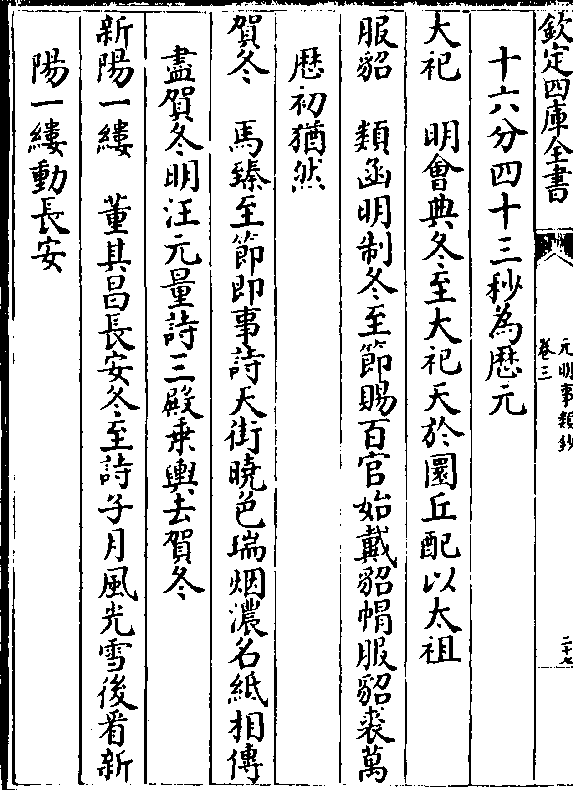 欽定四庫全書
元明事類鈔
卷三
二十七
十六分四十三秒為厯元
大祀　明會典冬至大祀天於圜丘配以太祖
服貂　類函明制冬至節賜百官始戴貂帽服貂裘萬
厯初猶然
賀冬　馬臻至節即事詩天街曉色瑞烟濃名紙相傳
盡賀冬明汪元量詩三殿乗輿去賀冬
新陽一縷　董其昌長安冬至詩子月風光雪後看新
陽一縷動長安